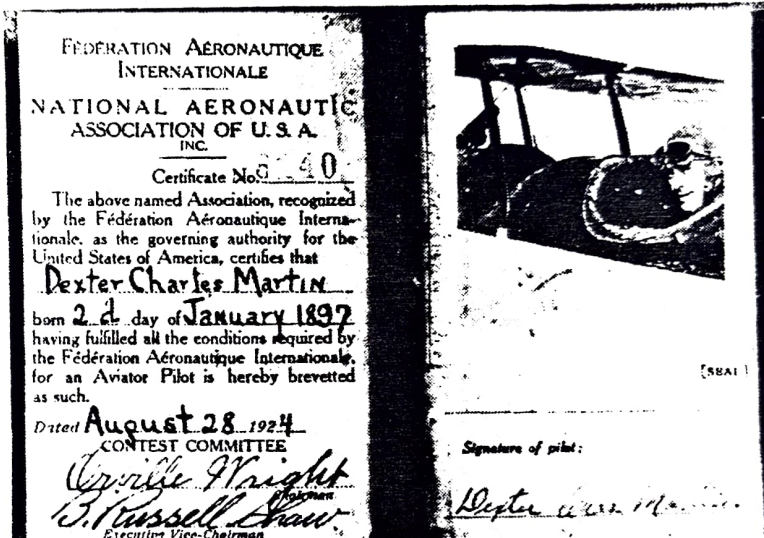 FÉDÉRATION AÉRONAUTIQUE
INTERNATIONALE
NATIONAL AERONAUTIC
ASSOCIATION OF U. S. A.
INC.
Certificate No.
The above named Association, recognized
by the Fédération Aéronautique Interna-
tionale, as the governing authority for the
United States of America, certifies that
Dexter Charles Martin
born 2d day of January 1897
having fulfilled all the conditions required by
the Fédération Aéronautique Internationale,
for an Aviator Pilot is hereby brevetted
as such.
Dated August 28 1924
CONTEST COMMITTEE
Orville Wright
Chairman
B. Russell Shaw
Executive Vice-Chairman
[SEAL]
Signature of pilot:
Dexter